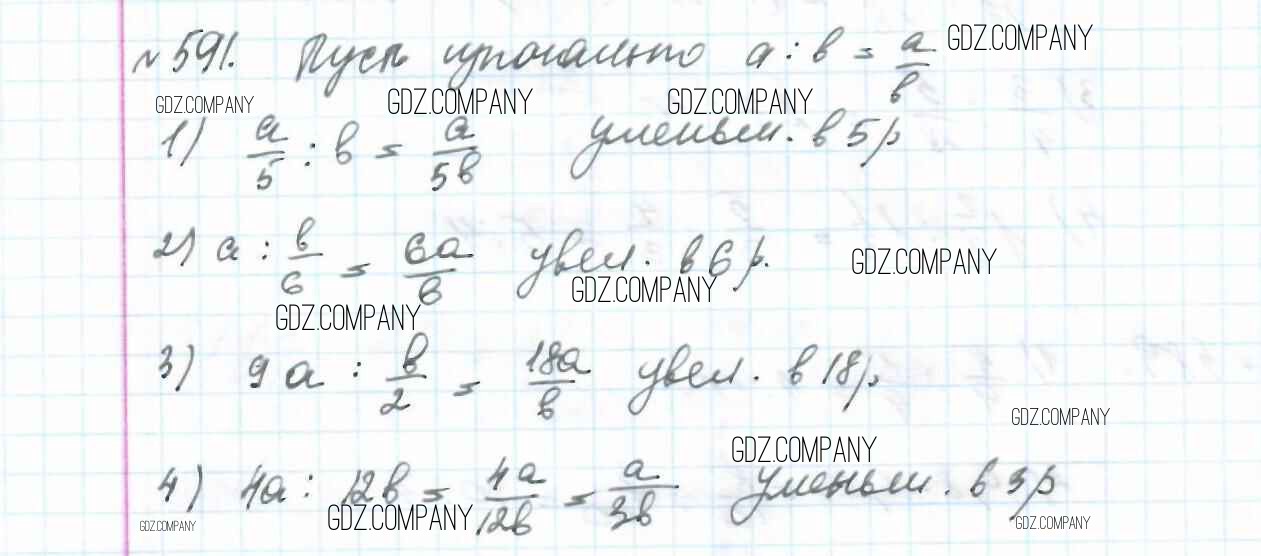 № 591. Пусть изначально a : b = a/b GDZ.COMPANY
GDZ.COMPANY GDZ.COMPANY GDZ.COMPANY
1) a/5 : b = a/5b уменьш. в 5 р
2) a : b/6 = 6a/b увел. в 6 р. GDZ.COMPANY
GDZ.COMPANY
GDZ.COMPANY
3) 9a : b/2 = 18a/b увел. в 18 р.
GDZ.COMPANY
GDZ.COMPANY
4) 4a : 12b = 4a/12b = a/3b уменьш. в 3 р
GDZ.COMPANY GDZ.COMPANY GDZ.COMPANY